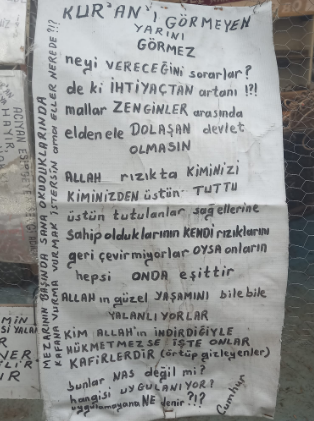 KUR'AN'I GÖRMEYEN
YARINI
GÖRMEZ
neyi VERECEĞİNİ sorarlar?
de ki İHTİYAÇTAN artanı !?!
mallar ZENGİNLER arasında
elden ele DOLAŞAN devlet
OLMASIN
ALLAH rızıkta KİMİNİZİ
KİMİNİZDEN üstün TUTTU
üstün tutulanlar sağ ellerine
sahip olduklarının KENDİ rızıklarını
geri çevirmiyorlar OYSA onların
hepsi ONDA eşittir
ALLAH'ın güzel YAŞAMINI bile bile
YALANLIYORLAR
KİM ALLAH'ın İNDİRDİĞİYLE
HÜKMETMEZSE İŞTE ONLAR
KAFİRLERDİR (örtüp gizleyenler)
Bunlar NAS değil mi?
hangisi UYGULANIYOR?
uygulamayana NE denir ?!?
Cumhur
MEZARININ BAŞINDA SANA OKUDUKLARINDA
KAFANA VURMA VURMAK İSTERSİN AMA ELLER NEREDE ?!?
ACIYAN
HAYIR